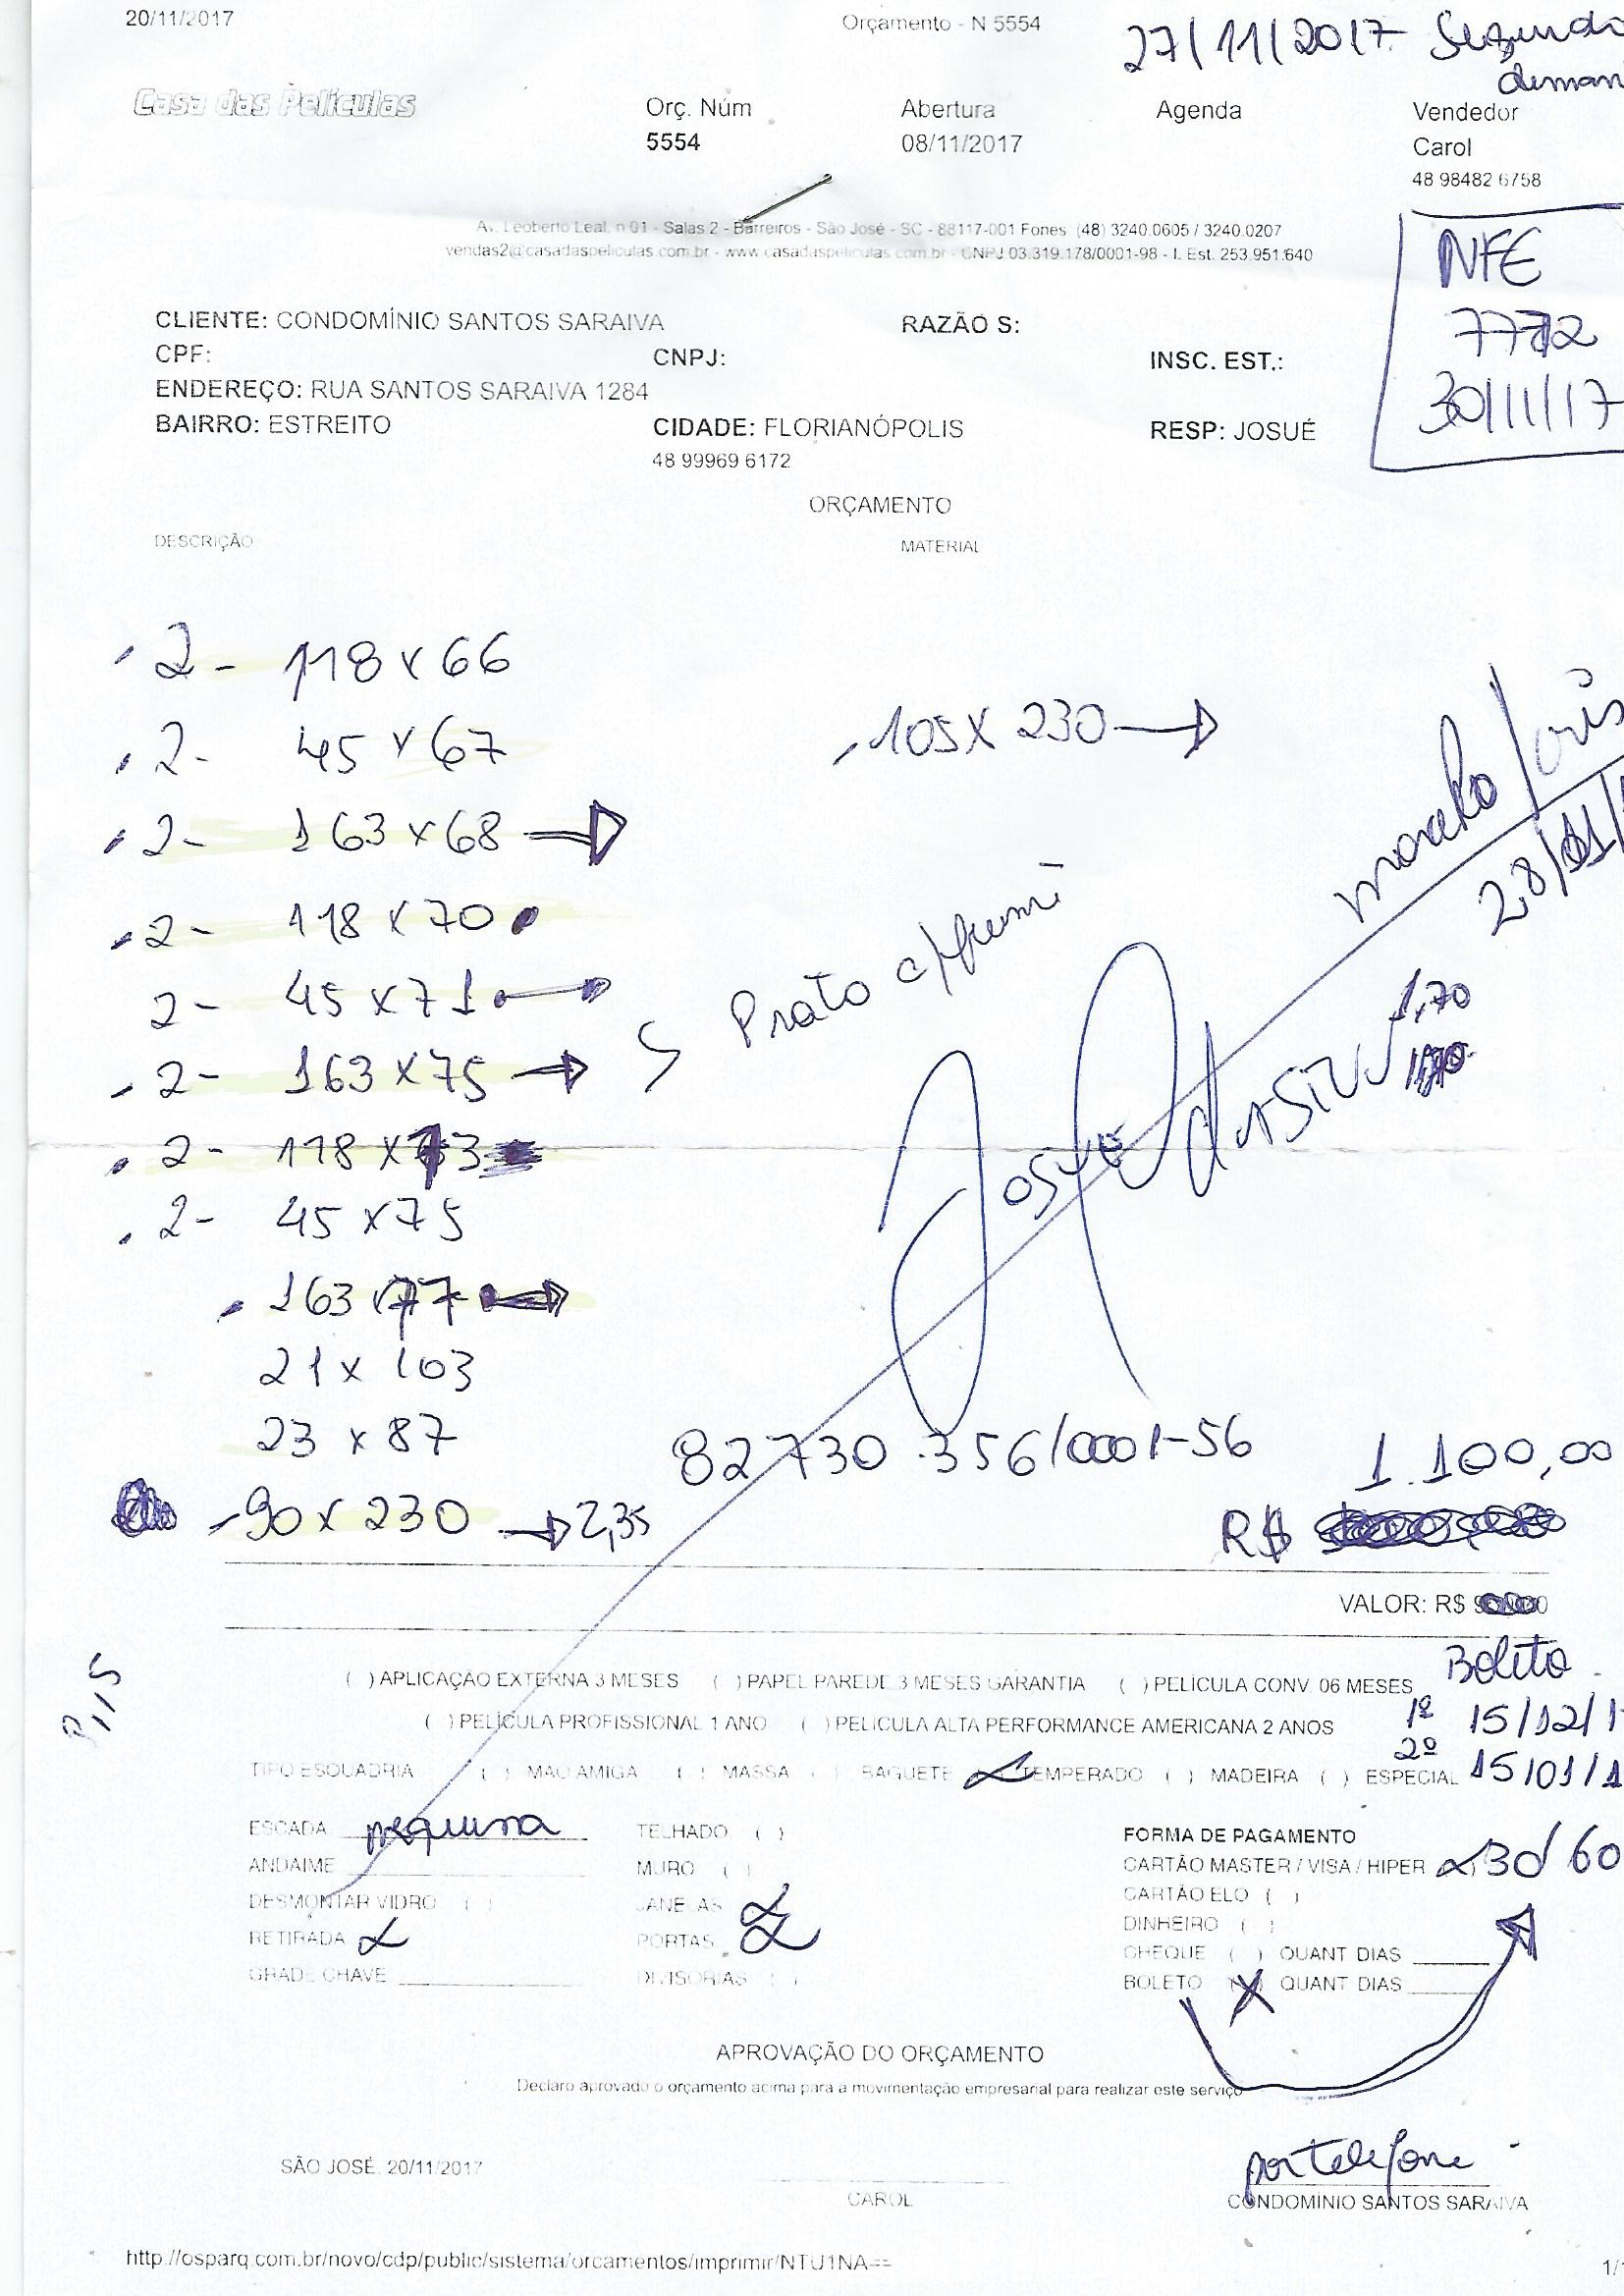 20/11/2017 Orçamento - N 5554
27/11/2017 Segunda
Casa das Películas
Orç. Núm Abertura Agenda Vendedor
5554 08/11/2017 Carol
48 98482 6758
Av. Leoberto Leal, n 01 - Salas 2 - Barreiros - São José - SC - 88117-001 Fones (48) 3240.0605 / 3240.0207
vendas2@casadaspeliculas.com.br - www.casadaspeliculas.com.br - CNPJ 03.319.178/0001-98 - I. Est. 253.951.640
NFE
7772
30/11/17
CLIENTE: CONDOMÍNIO SANTOS SARAIVA RAZÃO S:
CPF: CNPJ: INSC. EST.:
ENDEREÇO: RUA SANTOS SARAIVA 1284
BAIRRO: ESTREITO CIDADE: FLORIANÓPOLIS RESP: JOSUÉ
48 99969 6172
ORÇAMENTO
DESCRIÇÃO MATERIAL
2 - 118 x 66
2 - 45 x 67
105 x 230
2 - 163 x 68
2 - 118 x 70
2 - 45 x 71
Prata c/
2 - 163 x 75
1,70
Josué da Silva
28/11/
2 - 118 x 73
2 - 45 x 75
163 x 77
21 x 103
23 x 87
82730.356/0001-56
1.100,00
90 x 230 2,35
R$
VALOR: R$
Boleto
( ) APLICAÇÃO EXTERNA 3 MESES ( ) PAPEL PAREDE 3 MESES GARANTIA ( ) PELÍCULA CONV. 06 MESES
1º 15/12/1
( ) PELÍCULA PROFISSIONAL 1 ANO ( ) PELÍCULA ALTA PERFORMANCE AMERICANA 2 ANOS
2º 15/01/1
TIPO ESQUADRIA ( ) MAO AMIGA ( ) MASSA ( ) BAGUETE TEMPERADO ( ) MADEIRA ( ) ESPECIAL
ESCADA pequena TELHADO ( ) FORMA DE PAGAMENTO
ANDAIME MURO ( ) CARTÃO MASTER / VISA / HIPER 30/60
DESMONTAR VIDRO ( ) JANELAS CARTÃO ELO ( )
RETIRADA PORTAS DINHEIRO ( )
GRADE CHAVE DIVISORIAS ( ) CHEQUE ( ) QUANT DIAS
BOLETO (X) QUANT DIAS
APROVAÇÃO DO ORÇAMENTO
Declaro aprovado o orçamento acima para a movimentação empresarial para realizar este serviço
SÃO JOSÉ, 20/11/2017
por telefone
CAROL CONDOMÍNIO SANTOS SARAIVA
http://osparq.com.br/novo/cdp/public/sistema/orcamentos/imprimir/NTU1NA== 1/